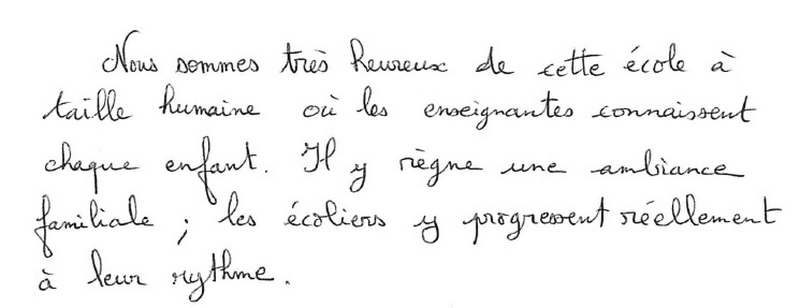 Nous sommes très heureux de cette école à
taille humaine où les enseignantes connaissent
chaque enfant. Il y règne une ambiance
familiale ; les écoliers y progressent réellement
à leur rythme.